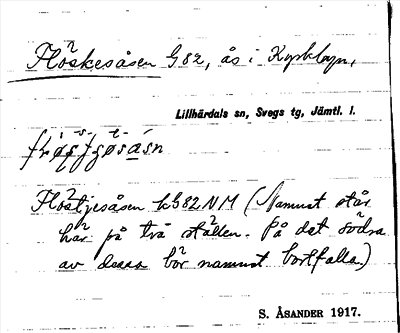 Flöskesåsen G82, ås i Kyrkbyn,
Lillhärdals sn, Svegs tg, Jämtl. l.
Flöstjesåsen kG82NM (Namnet står
här på två ställen. På det södra
av dessa bör namnet bortfalla.)
S. ÅSANDER 1917.